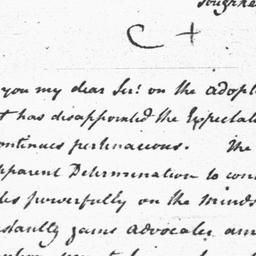 C +
you my dear Sir: on the adopt
t has disappointed the Expectat
ontinues pertinacious. The
pparent Determination to con
tes powerfully on the minds
stantly gains advocates am